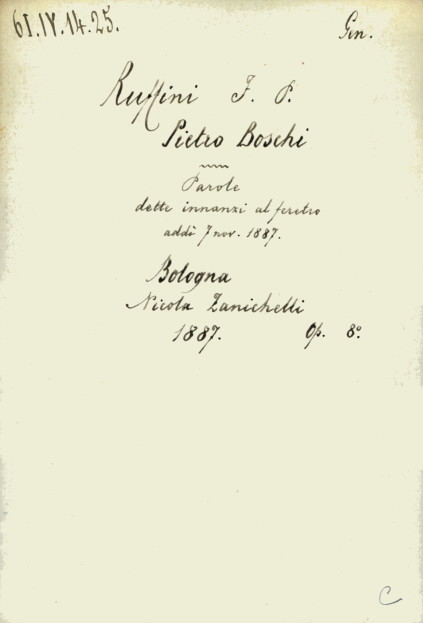 61.IV.14.25. Gen.
Ruffini F. P.
Pietro Boschi
Parole
dette innanzi al feretro
addì 7 nov. 1887.
Bologna
Nicola Zanichelli
1887. Op. 8°
C